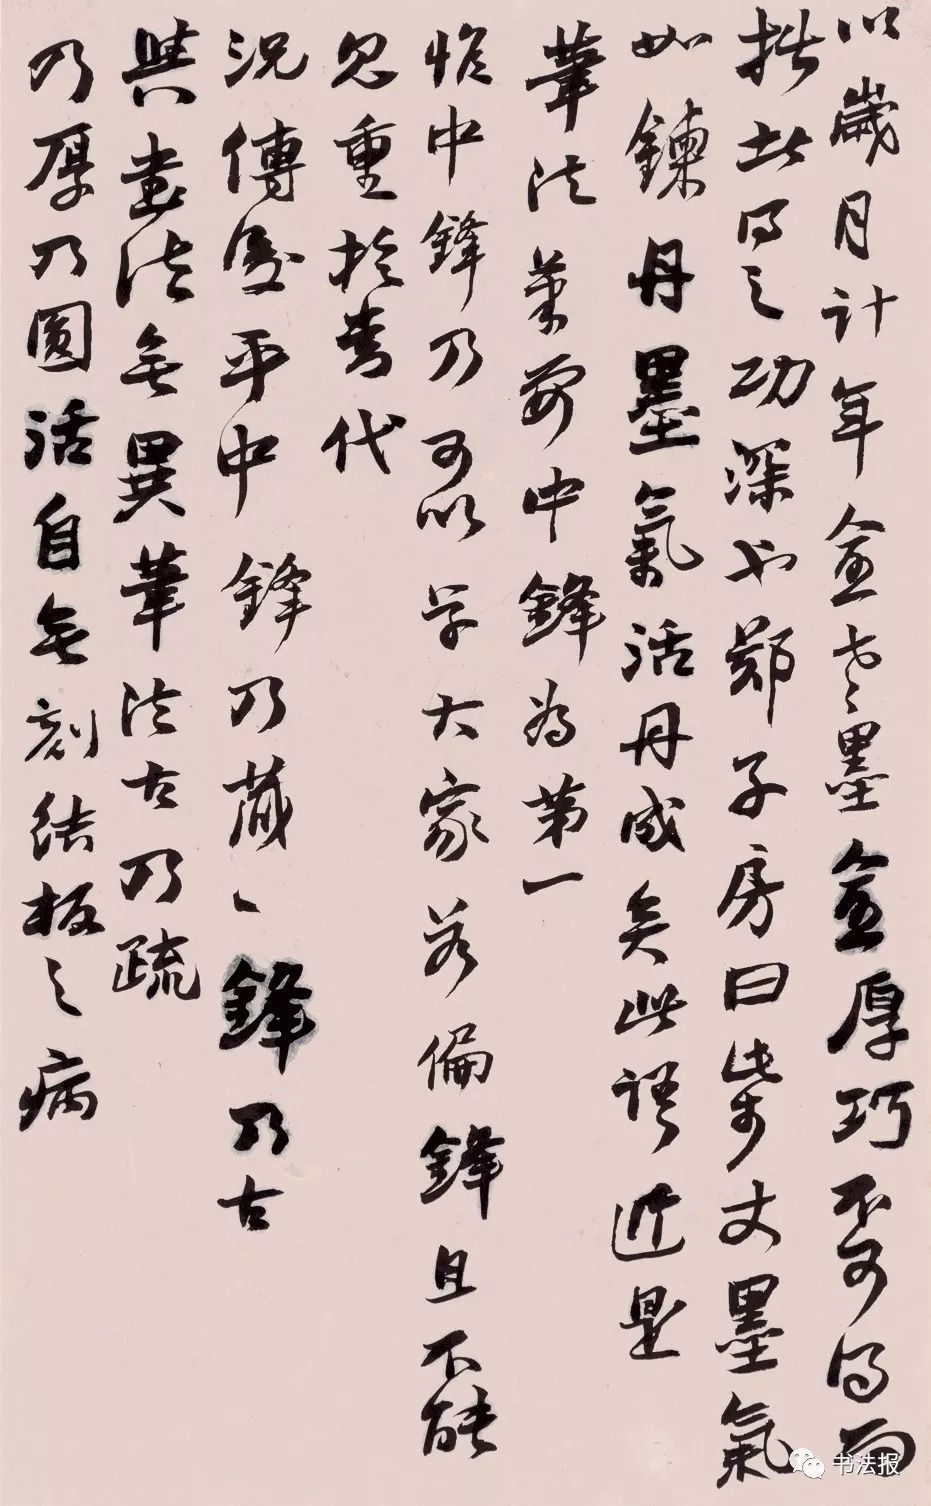 以歲月計年愈老墨愈厚巧不可得而
拙此得之功深也鄭子房曰柴丈墨氣
如鍊丹墨氣活丹成矣此語近是
筆法筆要中鋒為第一
惟中鋒乃可以学大家若偏鋒且不能
見重於當代
況傳後乎中鋒乃藏、鋒乃古
與書法無異筆法古乃疏
乃厚乃圓活自無刻結板之病
书法报